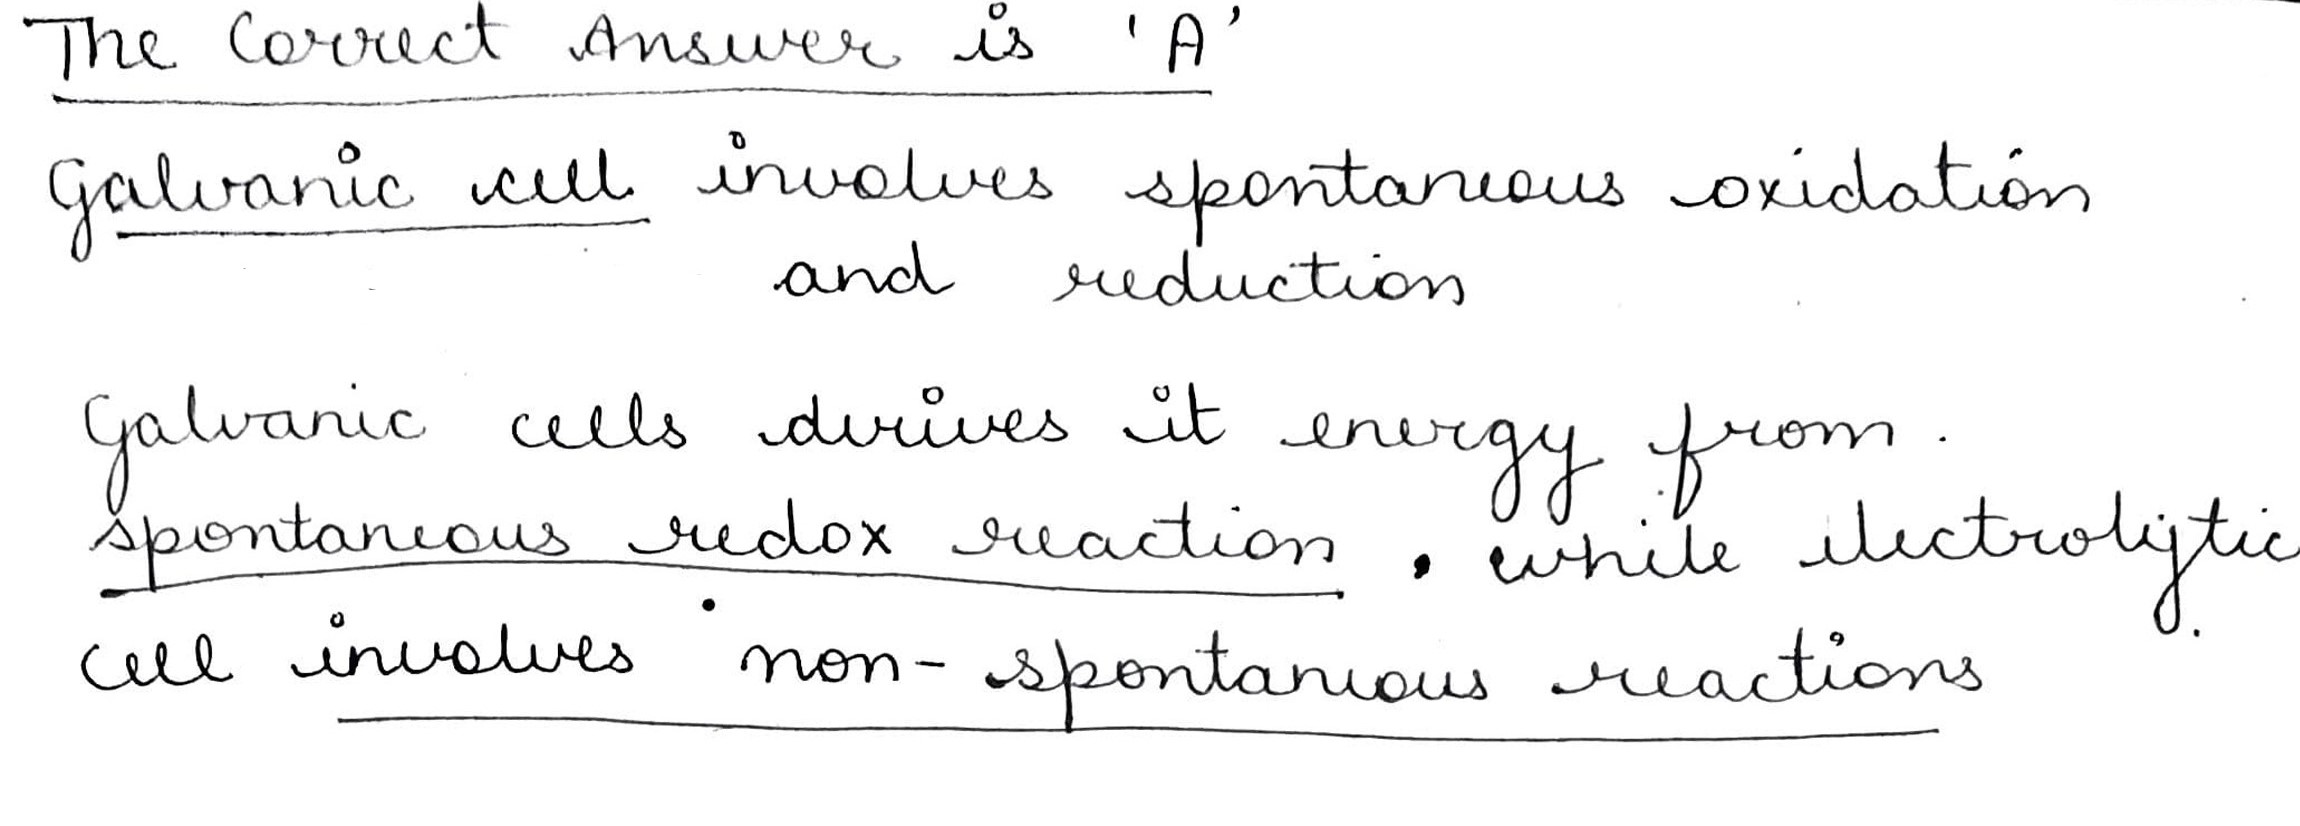 The Correct Answer is 'A'
Galvanic cell involves spontaneous oxidation
and reduction
Galvanic cells derives it energy from.
spontaneous redox reaction, while electrolytic
cell involves non-spontaneous reactions